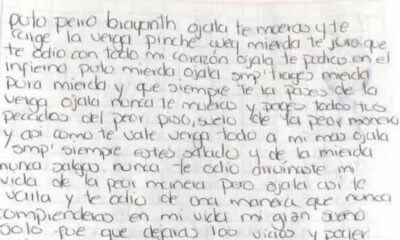 puto perro brayanth ojala te mueras y te
carge la verga pinche wey mierda te juro que
te odio con todo mi corazón ojala te pudras en el
infierno puto mierda ojala smp tragues mierda
pura mierda y que siempre te la pases de la
verga ojala nunca te mueras y pages todos tus
peccados del peor piso, suelo de la peor manera
y asi como te vale verga todo a mi mas ojala
smp' siempre estes salado y de la mierda
nunca salgas nunca te odio arruinaste mi
vida de la peor manera pero ojala asi te
valla y te odio de una manera que nunca
comprenderas en mi vida mi gran sueño
solo fue que dejaras los vicios y poder